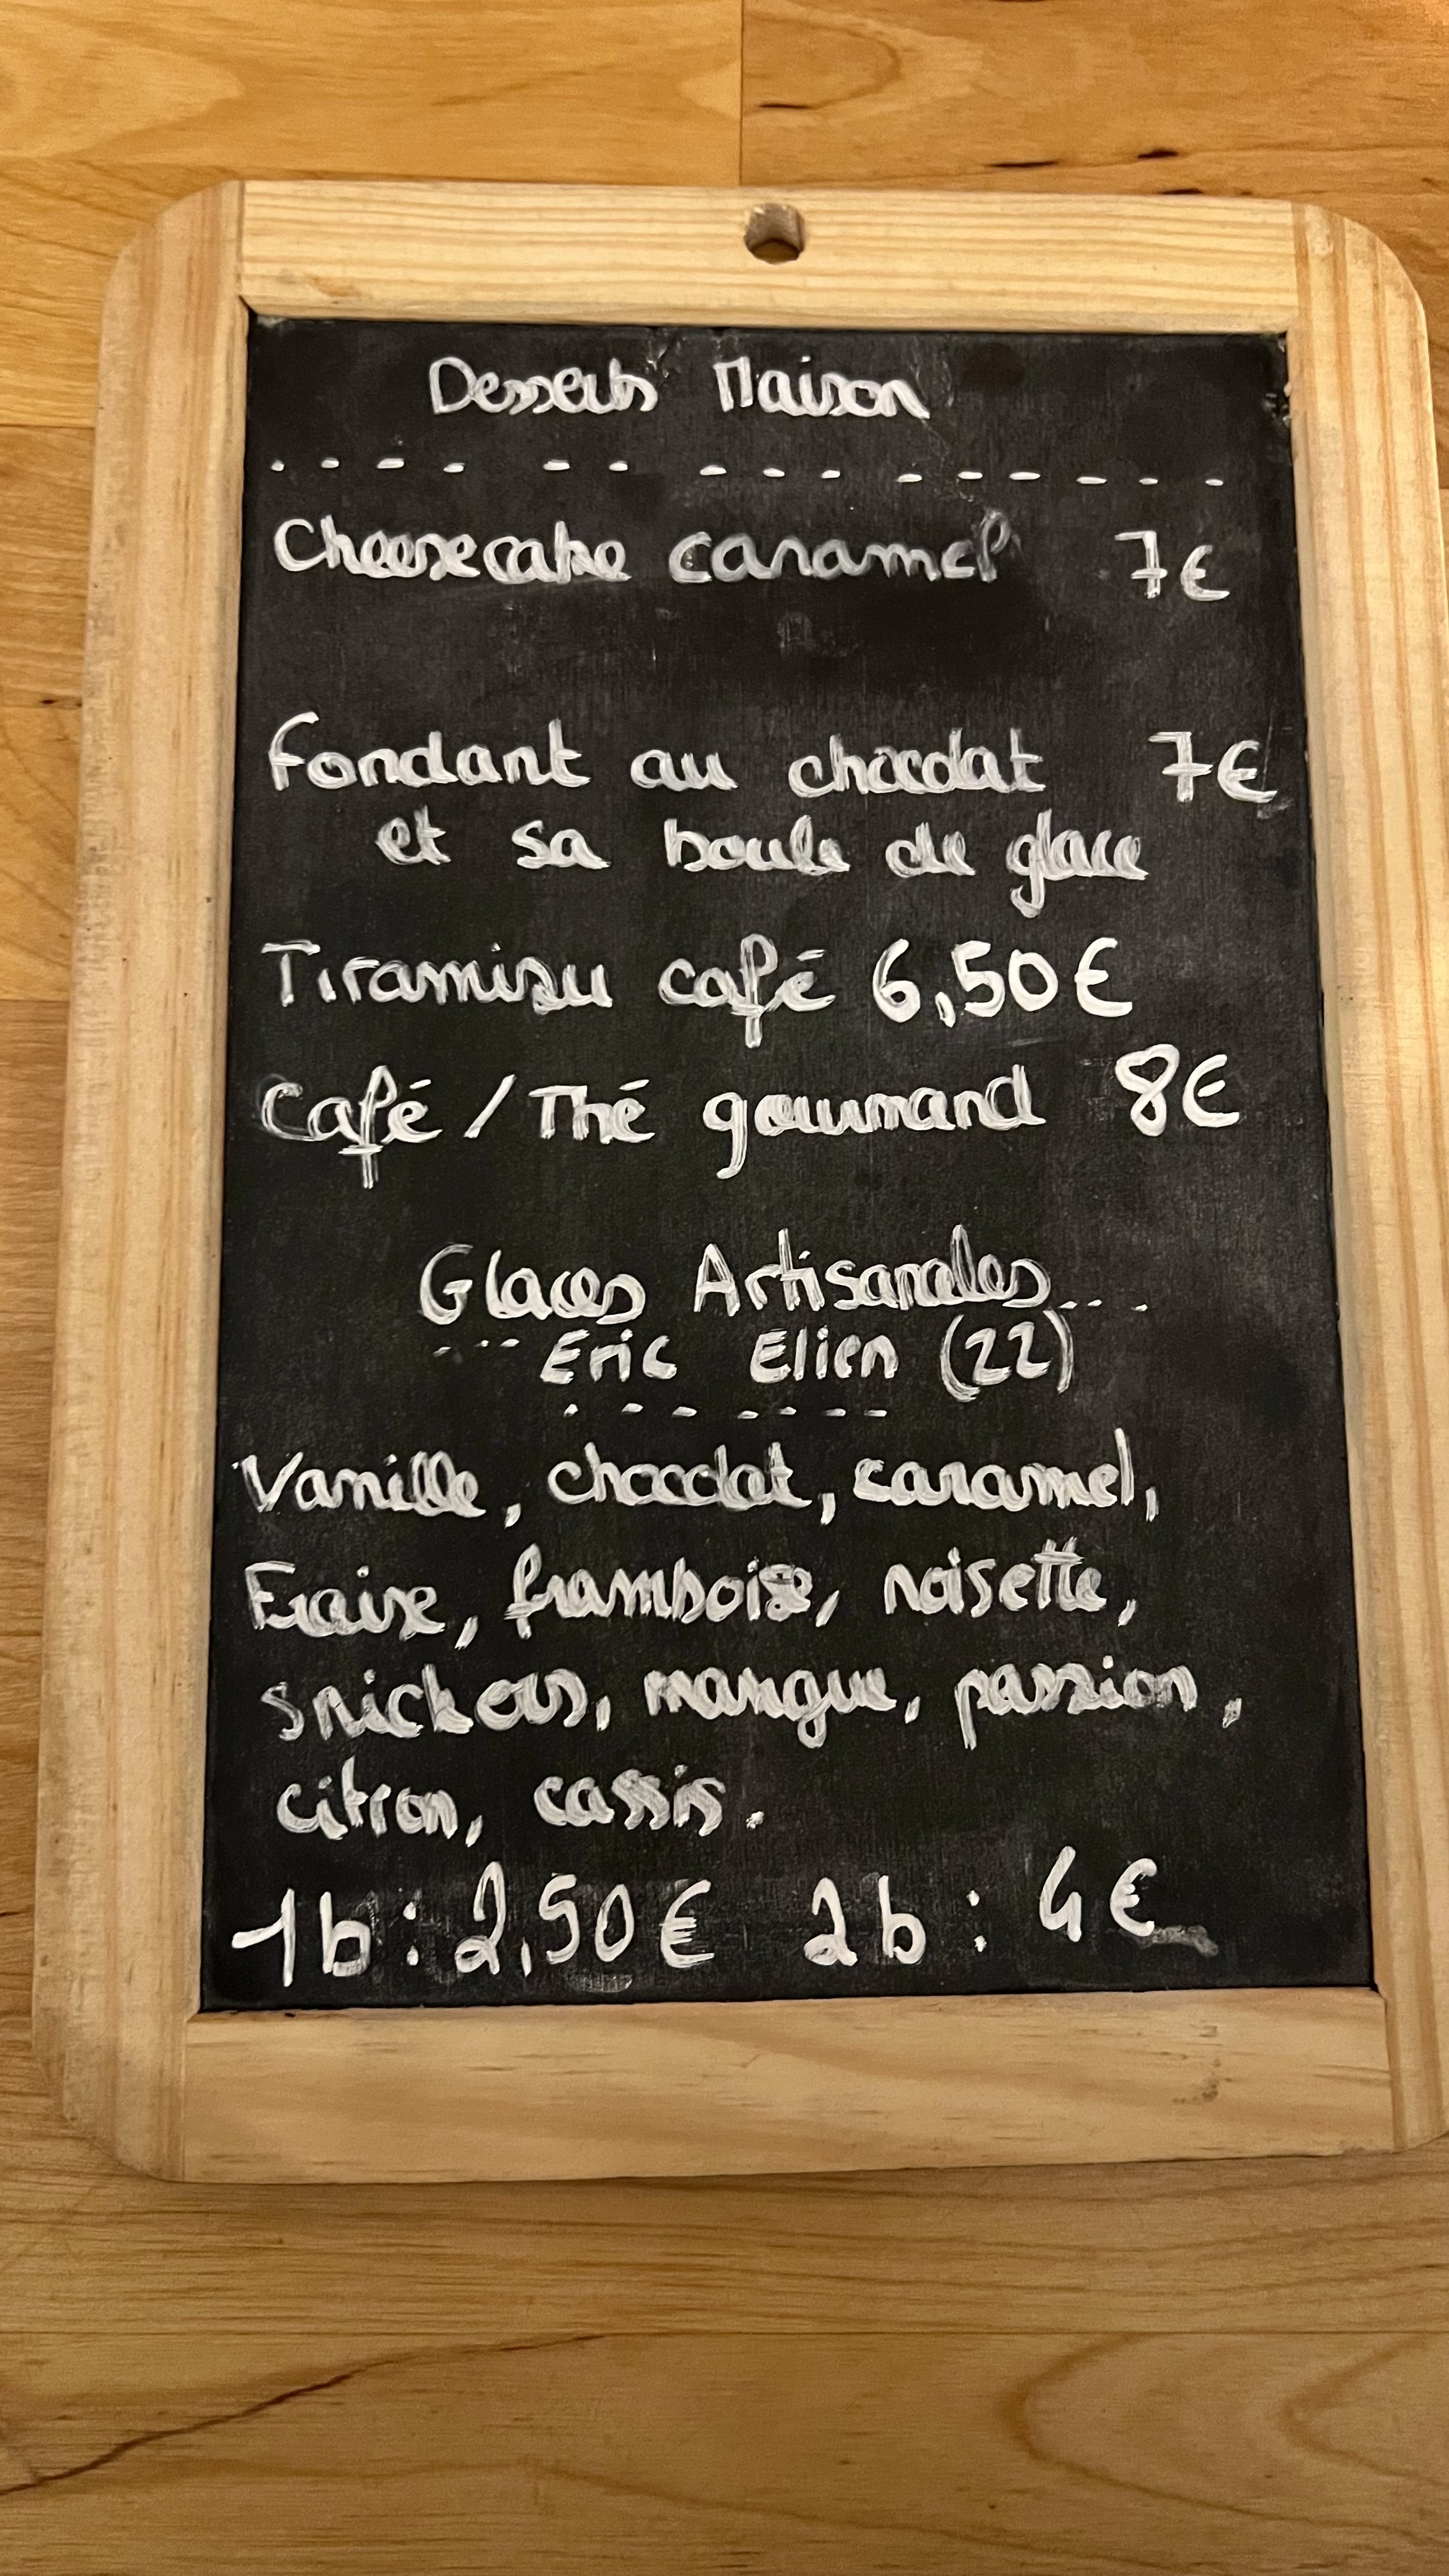 Desserts Maison
Cheesecake caramel 7€
Fondant au chocolat 7€
et sa boule de glace
Tiramisu café 6,50€
Café / Thé gourmand 8€
Glaces Artisanales
Eric Elien (22)
Vanille, chocolat, caramel,
Fraise, framboise, noisette,
snickers, mangue, passion,
citron, cassis.
1b : 2,50€ 2b : 4€